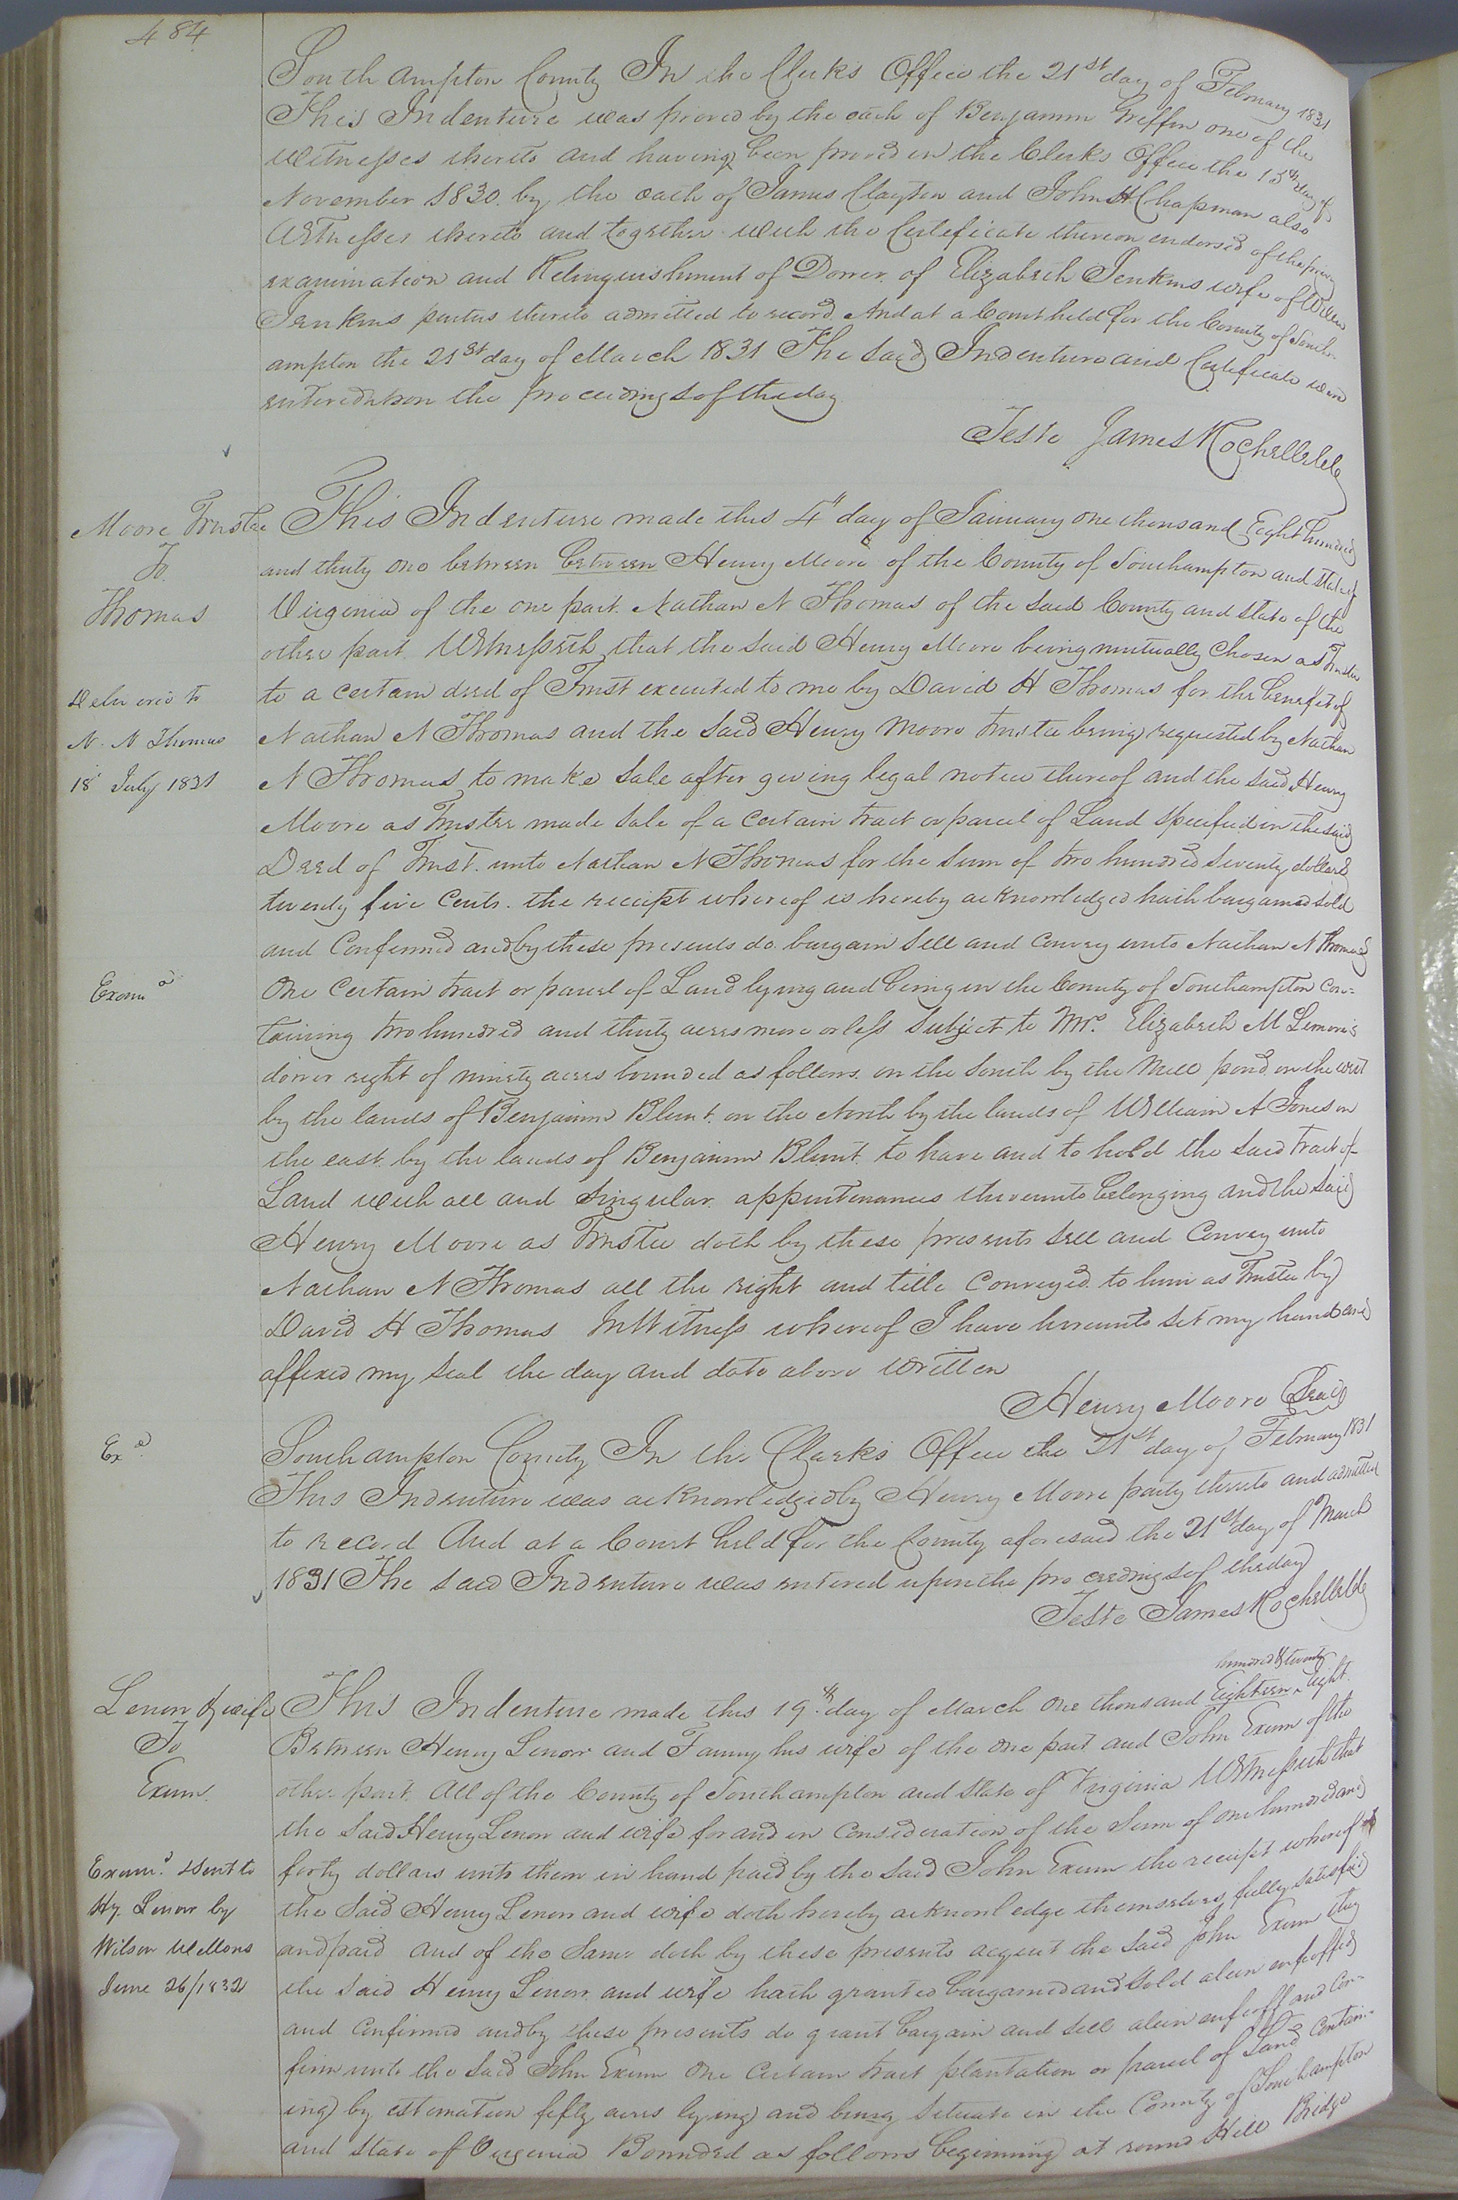 484
Southampton County In the Clerks Office the 21st day of February 1831
This Indenture was proved by the oath of Benjamin Griffin one of the
witnesses thereto and having been proved in the Clerks Office the 15th day of
November 1830 by the oath of James Clayton and John H Chapman also
Witnesses thereto and together with the Certificate thereon endorsed of the privy
examination and Relinquishment of Dower of Elizabeth Jenkins wife of
Jenkins parties thereto admitted to record. And at a Court held for the County of South
ampton the 21st day of March 1831 The said Indenture and Certificate were
entered upon the proceedings of the day
Teste James Rochelle Clk
Moore Trustee
To
Thomas
Delivered to
N. N Thomas
18 July 1831
Examd
This Indenture made this 4th day of January one thousand Eight hundred
and thirty one between between Henry Moore of the County of Southampton and State of
Virginia of the one part. Nathan N Thomas of the said County and State of the
other part. Witnesseth that the said Henry Moore being mutually Chosen as Trustee
to a certain deed of Trust executed to me by David H Thomas for the benefit of
Nathan N Thomas and the said Henry Moore trustee being requested by Nathan
N Thomas to make Sale after giving legal notice thereof and the said Henry
Moore as Trustee made Sale of a Certain tract or parcel of Land Specified in the said
Deed of Trust. unto Nathan N Thomas for the Sum of two hundred Seventy dollars
twenty five Cents. the receipt whereof is hereby acknowledged hath bargained Sold
and Confirmed and by these presents do bargain Sell and Convey unto Nathan N Thomas
One Certain tract or parcel of Land lying and being in the County of Southampton Con=
taining two hundred and thirty acres more or less Subject to Mrs. Elizabeth M Lemore's
dower right of ninety acres bounded as follows. on the South by the Mill pond on the west
by the lands of Benjamin Blunt. on the North by the lands of William A Jones on
the east by the lands of Benjamin Blunt. to have and to hold the said tract of
Land with all and Singular. appurtenances thereunto belonging and the said
Henry Moore as Trustee doth by these presents sell and Convey unto
Nathan N Thomas all the right and title Conveyed to him as Trustee by
David H Thomas In Witness whereof I have hereunto set my hand and
affixed my Seal the day and date above written
Henry Moore Seal
Exd
Southampton County In the Clerks Office the 21st day of February 1831
This Indenture was acknowledged by Henry Moore party thereto and admitted
to record And at a Court held for the County aforesaid the 21st day of March
1831 The said Indenture was entered upon the proceedings of the day
Teste James Rochelle Clk
Lenow & wife
To
Exum.
Examd. & Sent to
Hy. Lenow by
Wilson Wellons
June 26/1832
hundred & twenty
This Indenture made this 19th day of March one thousand Eighteen ^ Eight.
Between Henry Lenow and Fanny his wife of the one part and John Exum of the
other part. All of the County of Southampton and State of Virginia Witnesseth that
the said Henry Lenow and wife for and in Consideration of the Sum of one hundred and
forty dollars unto them in hand paid by the Said John Exum the receipt whereof
the Said Henry Lenow and wife doth hereby acknowledge themselves fully satisfied
and paid and of the Same doth by these presents acquit the Said John Exum they
the Said Henry Lenow and wife hath granted bargained and Sold alien enfeoffed
and Confirmed and by these presents do grant bargain and Sell alien enfeoff and Con-
firm unto the Said John Exum One Certain tract plantation or parcel of Land Contain-
ing by estimation fifty acres lying and being Situate in the County of Southampton
and State of Virginia Bounded as follows beginning at round Hill Bridge